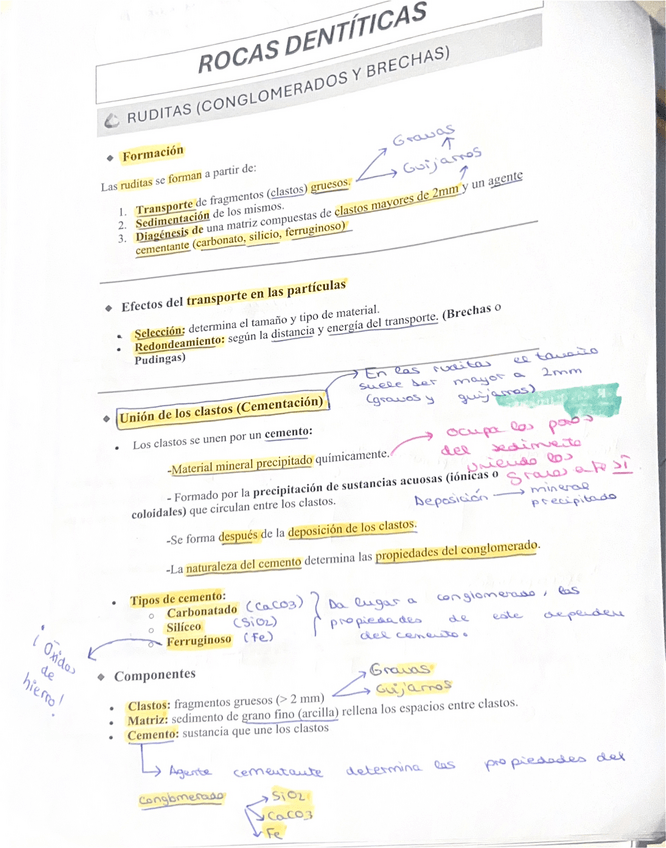 ROCAS DENTÍTICAS
RUDITAS (CONGLOMERADOS Y BRECHAS)
Formación
Gravas
Guijarros
Las ruditas se forman a partir de:
1. Transporte de fragmentos (clastos) gruesos.
2. Sedimentación de los mismos.
3. Diagénesis de una matriz compuestas de clastos mayores de 2mm y un agente
cementante (carbonato, silicio, ferruginoso)
Efectos del transporte en las partículas
Selección: determina el tamaño y tipo de material.
Redondeamiento: según la distancia y energía del transporte. (Brechas o
Pudingas)
En las ruditas el tamaño
suele ser mayor a 2mm
(gravas y guijarros)
Unión de los clastos (Cementación)
Los clastos se unen por un cemento:
-Material mineral precipitado químicamente.
ocupa los poros
del sedimento
uniendo los
granos entre sí
- Formado por la precipitación de sustancias acuosas (iónicas o
coloidales) que circulan entre los clastos.
Deposición mineral
precipitado
-Se forma después de la deposición de los clastos.
-La naturaleza del cemento determina las propiedades del conglomerado.
Tipos de cemento:
Carbonatado (CaCO3)
Silíceo (SiO2)
Ferruginoso (Fe)
Da lugar a conglomerado, las
propiedades de este dependen
del cemento.
¡Óxidos
de
hierro!
Componentes
Gravas
Guijarros
Clastos: fragmentos gruesos (> 2 mm)
Matriz: sedimento de grano fino (arcilla) rellena los espacios entre clastos.
Cemento: sustancia que une los clastos
Agente cementante determina las propiedades del
conglomerado
SiO2
CaCO3
Fe